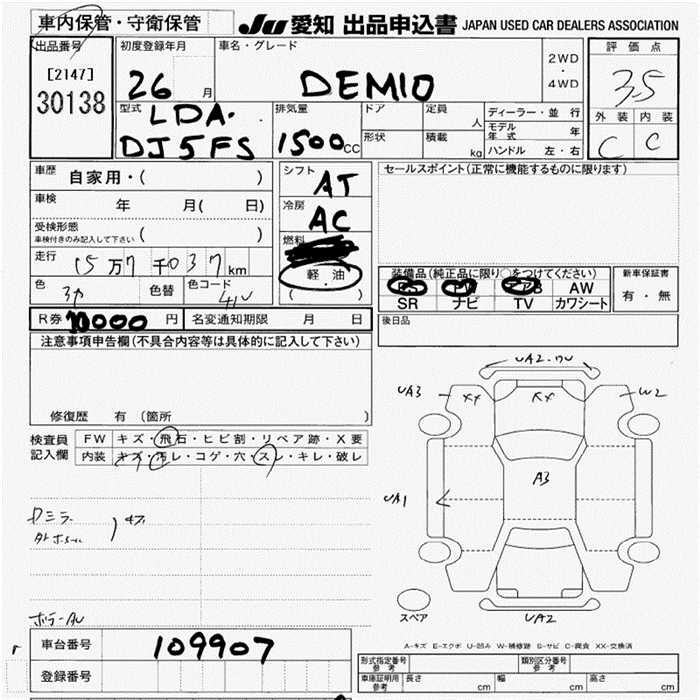 車内保管・守衛保管
JU 愛知 出品申込書 JAPAN USED CAR DEALERS ASSOCIATION
出品番号
[2147]
30138
初度登録年月
26 月
車名・グレード
DEMIO
2WD
・
4WD
評価点
3.5
外装 内装
C C
型式
LDA-
DJ5FS
排気量
1500cc
ドア
形状
定員 人
積載 kg
ディーラー・並行
モデル年式 年
ハンドル 左・右
車歴 自家用・( )
車検 年 月( 日)
受検形態
車検付きのみ記入して下さい ( )
走行 15万7千037km
色 色替 色コード
シフト AT
冷房 AC
燃料
軽・油
( )
セールスポイント(正常に機能するものに限ります)
装備品(純正品に限り○をつけてください)
PS PW エアB AW
SR ナビ TV カワシート
新車保証書
有・無
R券 10000 円 名変通知期限 月 日
後日品
注意事項申告欄(不具合内容等は具体的に記入して下さい)
修復歴 有(箇所 )
検査員
記入欄
FW キズ・飛石・ヒビ割・リペア跡・X要
内装 キズ・汚レ・コゲ・穴・スレ・キレ・破レ
UA3
XX
XX
W2
A3
UA1
UA2
スペア
A-キズ E-エクボ U-凹み W-補修跡 S-サビ C-腐食 XX-交換済
車台番号 109907
登録番号
形式指定番号 参考
類別区分番号 参考
車庫証明用 参考 長さ cm 幅 cm 高さ cm